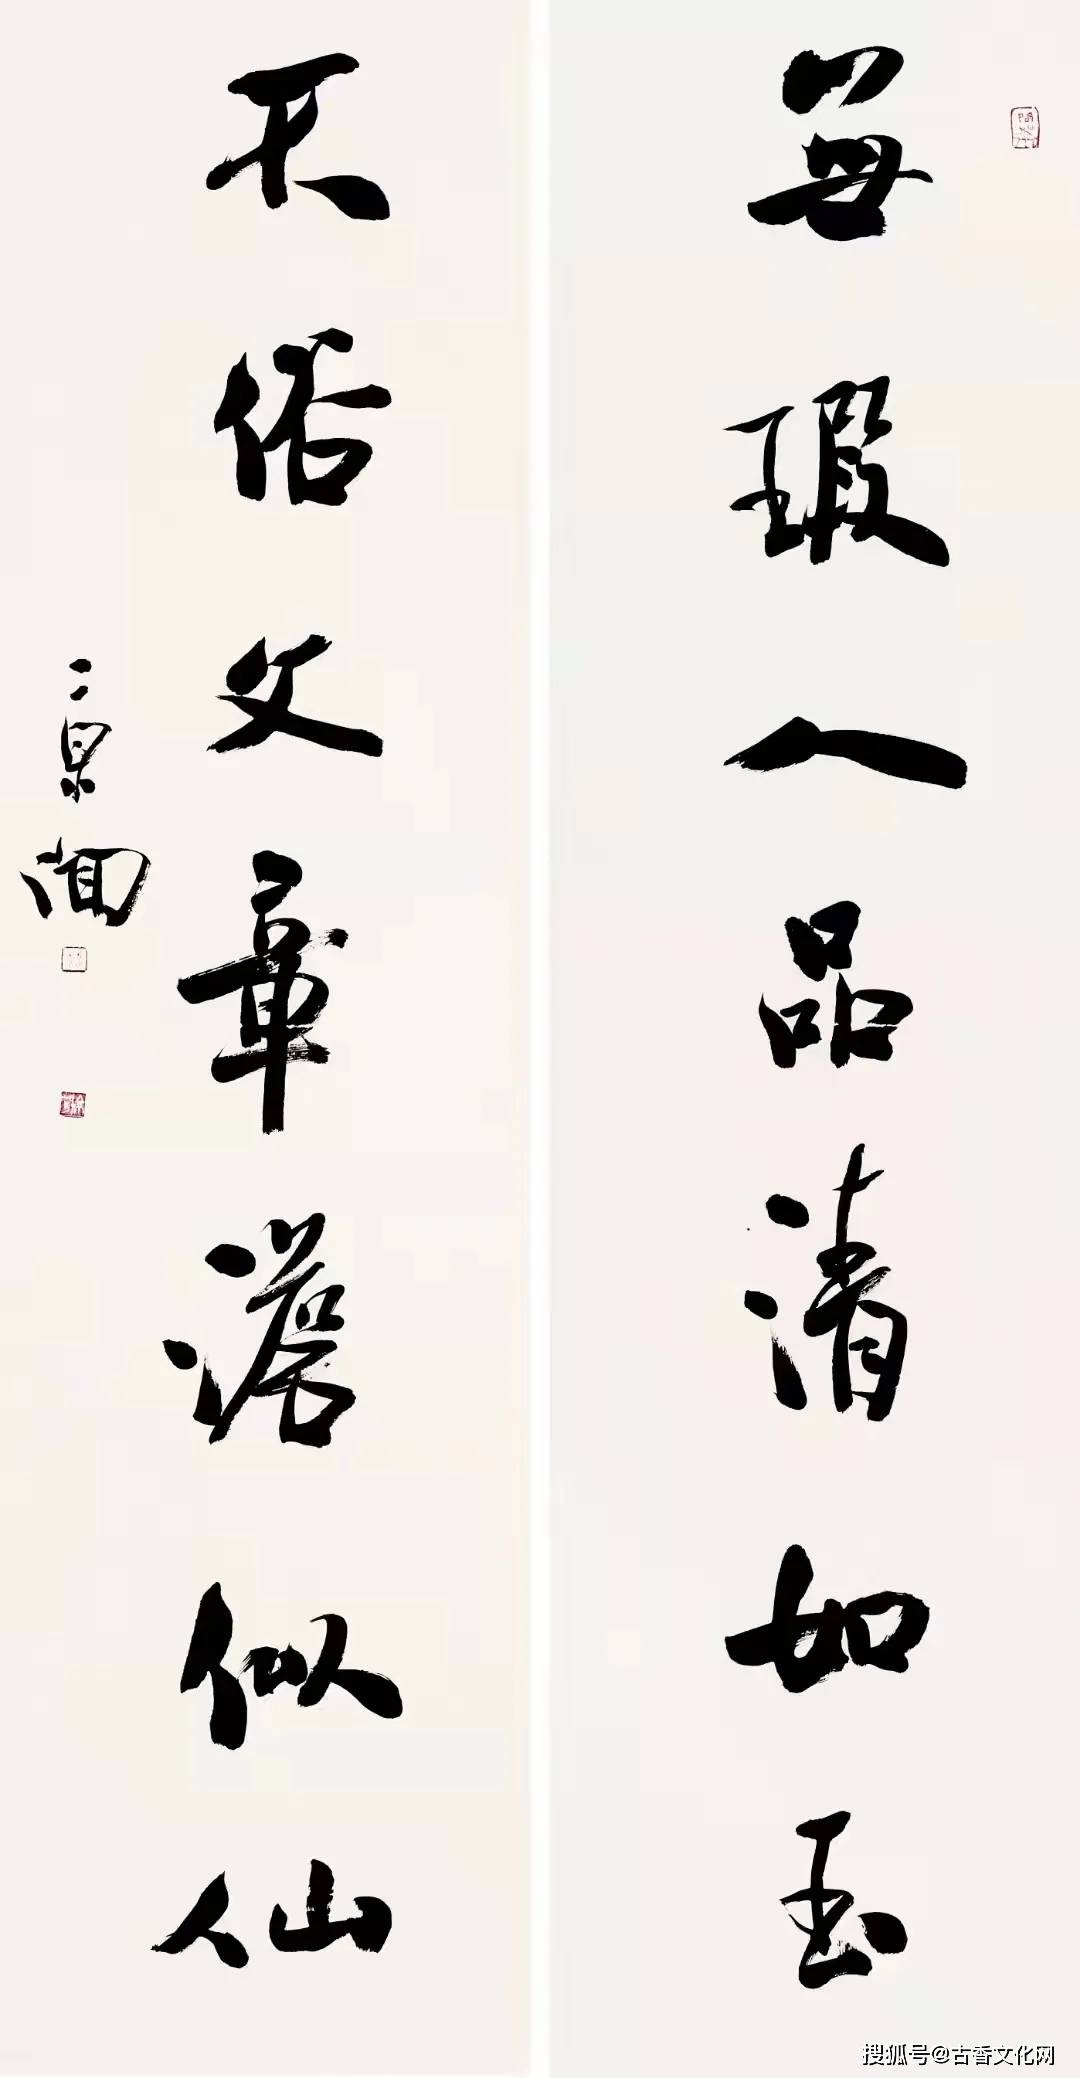 無瑕人品清如玉
不俗文章澹似仙
搜狐号@古香文化网